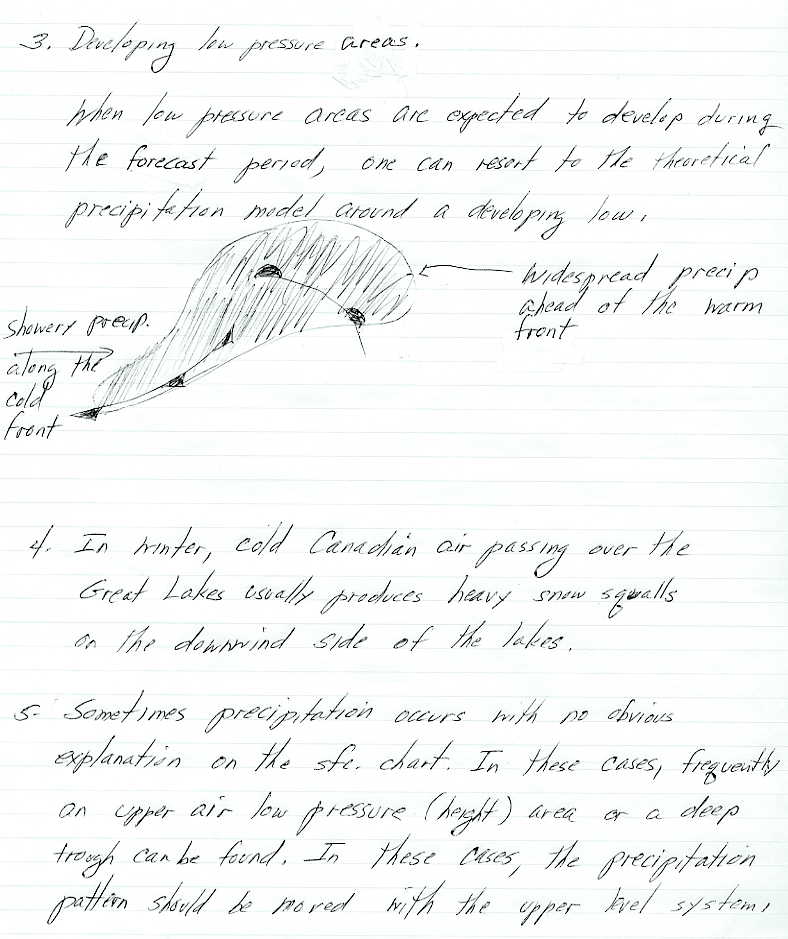 3. Developing low pressure areas.
When low pressure areas are expected to develop during
the forecast period, one can resort to the theoretical
precipitation model around a developing low.
Widespread precip
ahead of the warm
front
Showery precip.
along the
cold
front
4. In winter, cold Canadian air passing over the
Great Lakes usually produces heavy snow squalls
on the downwind side of the lakes.
5. Sometimes precipitation occurs with no obvious
explanation on the sfc. chart. In these cases, frequently
an upper air low pressure (height) area or a deep
trough can be found. In these cases, the precipitation
pattern should be moved with the upper level system.